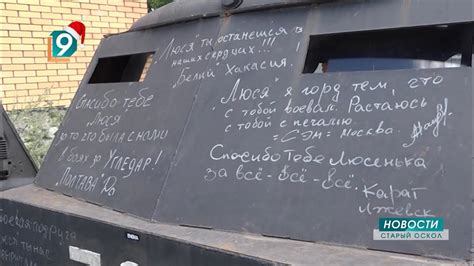 9
"Люся" ты останешся в
наших сердцах!!!
"Белий" Хакасия.
Спасибо тебе
Люся
за то что была с нами
в боях за Угледар!
"Полтава"
"Люся" я горд тем, что
с тобой воевал. Растаюсь
с тобой с печалию
=СЭМ= Москва.
Спасибо Тебе Люсенька
за всё-всё-всё.
Карат
Ижевск
боевая подруга
НОВОСТИ
СТАРЫЙ ОСКОЛ